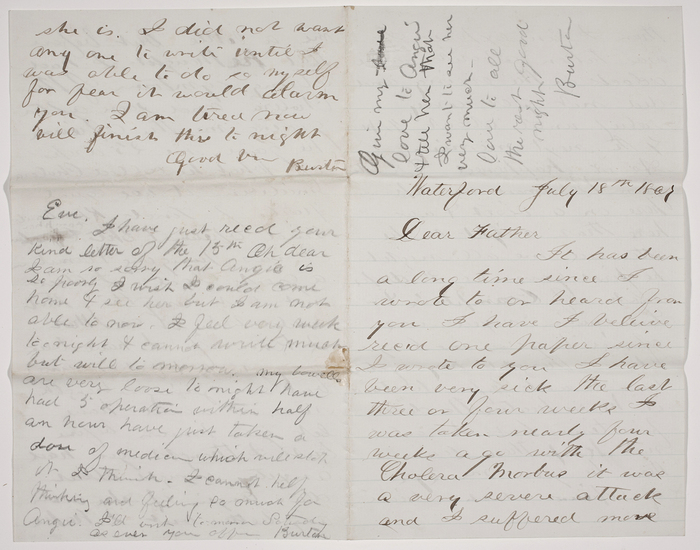 Waterford July 18th 1867
Dear Father
It has been
a long time since I
wrote to or heard from
you I have I believe
recd one paper since
I wrote to you I have
been very sick the last
three or four weeks I
was taken nearly four
weeks ago with the
Cholera Morbus it was
a very severe attack
and I suffered more
she is. I did not want
any one to write until I
was able to do so myself
for fear it would alarm
you. I am tired now
will finish this to night
Good
Burton
Eve.
I have just recd your
kind letter of the 15th Oh dear
I am so sorry that Angie is
so poorly I wish I could come
home & see her but I am not
able to now. I feel very weak
to night & cannot write much
but will to morrow. my bowels
are very loose to night have
had 5 operation within half
an hour have just taken a
dose of medicin which will stop
it I think. I cannot help
thinking and feeling so much for
Angie. I'll write to morrow Sunday
as ever your Burton
Give my
love to Angie
& tell her that
I want to see her
very much.
Love to all
the rest good
night
Burton